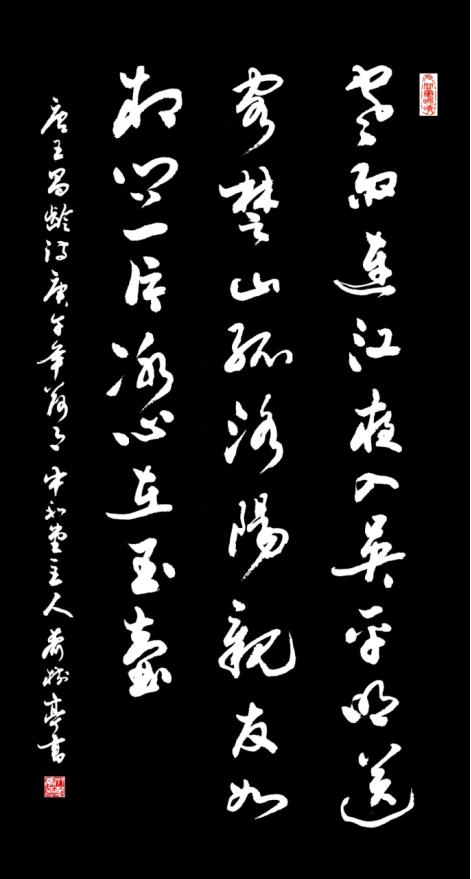 寒雨連江夜入吳平明送
客楚山孤洛陽親友如
相問一片冰心在玉壺
唐王昌齡詩庚午年月中和堂主人亭書